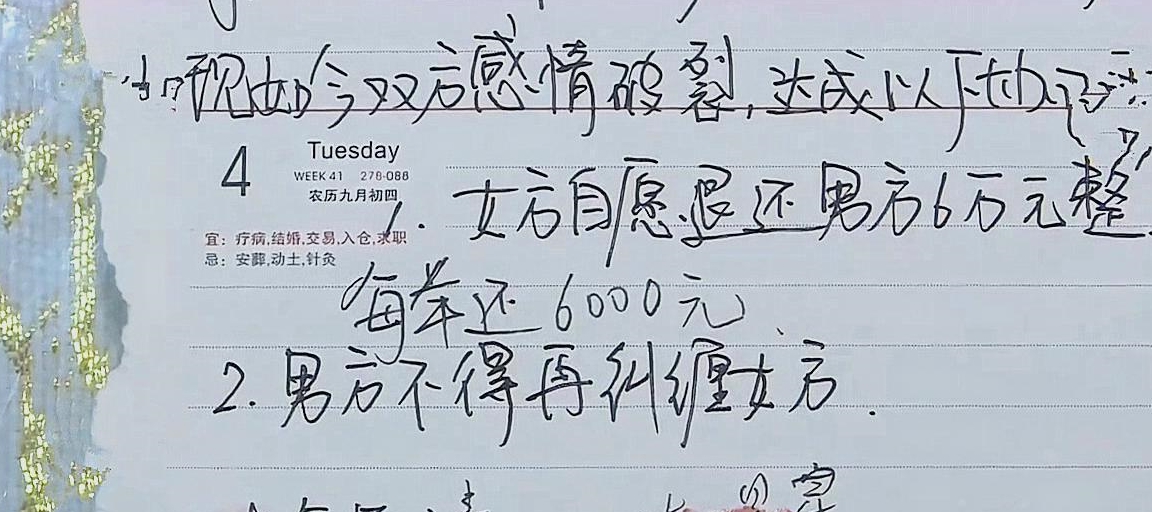 现如今双方感情破裂,达成以下协议
4
Tuesday
WEEK 41 278-088
农历九月初四
宜：疗病,结婚,交易,入仓,求职
忌：安葬,动土,针灸
1. 女方自愿退还男方6万元整
每年还6000元.
2. 男方不得再纠缠女方.